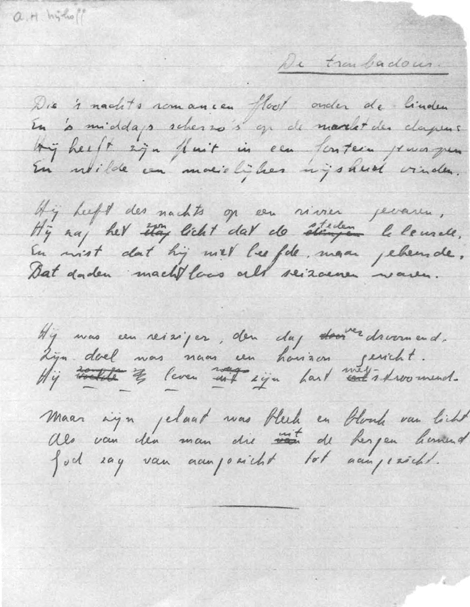 A. H. Nijhoff
De troubadour.
Die 's nachts romancen floot onder de linden
En 's middags scherzo's op de markt der dorpen:
Hij heeft zijn fluit in een fontein geworpen
En wilde een moeielijker wijsheid vinden.
Hij heeft des nachts op een rivier gevaren,
Hij zag het zon licht dat de steden
En wist dat hij niet leefde, maar gebeurde,
Dat daden machtloos als seizoenen waren.
Hij was een reiziger, den dag verdroomend.
Zijn doel was naar een horizon gericht.
Hij leven zijn hart stroomend.
Maar zijn gelaat was bleek en blonk van licht
Als van den man die uit de bergen komend
God zag van aangezicht tot aangezicht.